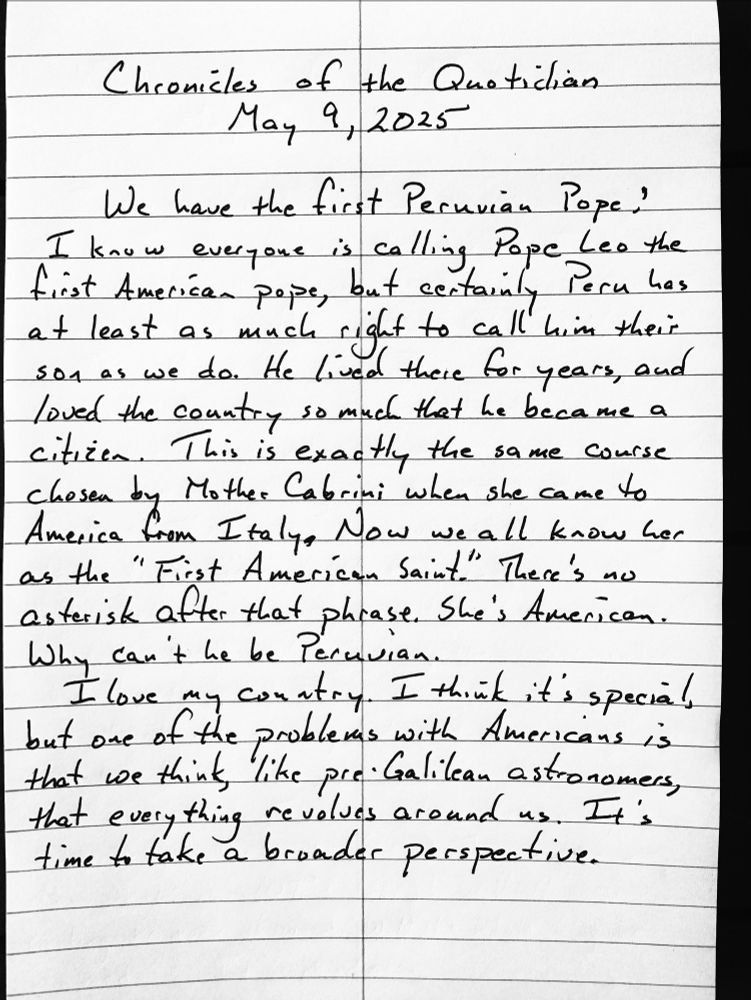 Chronicles of the Quotidian
May 9, 2025
We have the first Peruvian Pope!
I know everyone is calling Pope Leo the
first American pope, but certainly Peru has
at least as much right to call him their
son as we do. He lived there for years, and
loved the country so much that he became a
citizen. This is exactly the same course
chosen by Mother Cabrini when she came to
America from Italy. Now we all know her
as the "First American Saint." There's no
asterisk after that phrase. She's American.
Why can't he be Peruvian.
I love my country. I think it's special,
but one of the problems with Americans is
that we think, like pre-Galilean astronomers,
that everything revolves around us. It's
time to take a broader perspective.